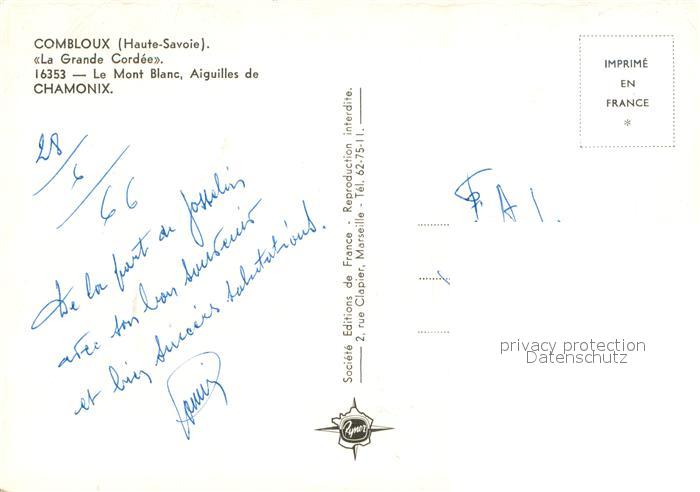 COMBLOUX (Haute-Savoie).
«La Grande Cordée».
16353 — Le Mont Blanc, Aiguilles de
CHAMONIX.
28/6/66
De la part de Josselin
avec son bon souvenir
et bien sincères salutations.
Société Editions de France - Reproduction interdite.
2, rue Clapier, Marseille - Tél. 62-75-11.
IMPRIMÉ
EN
FRANCE
*
F. A I.
privacy protection
Datenschutz